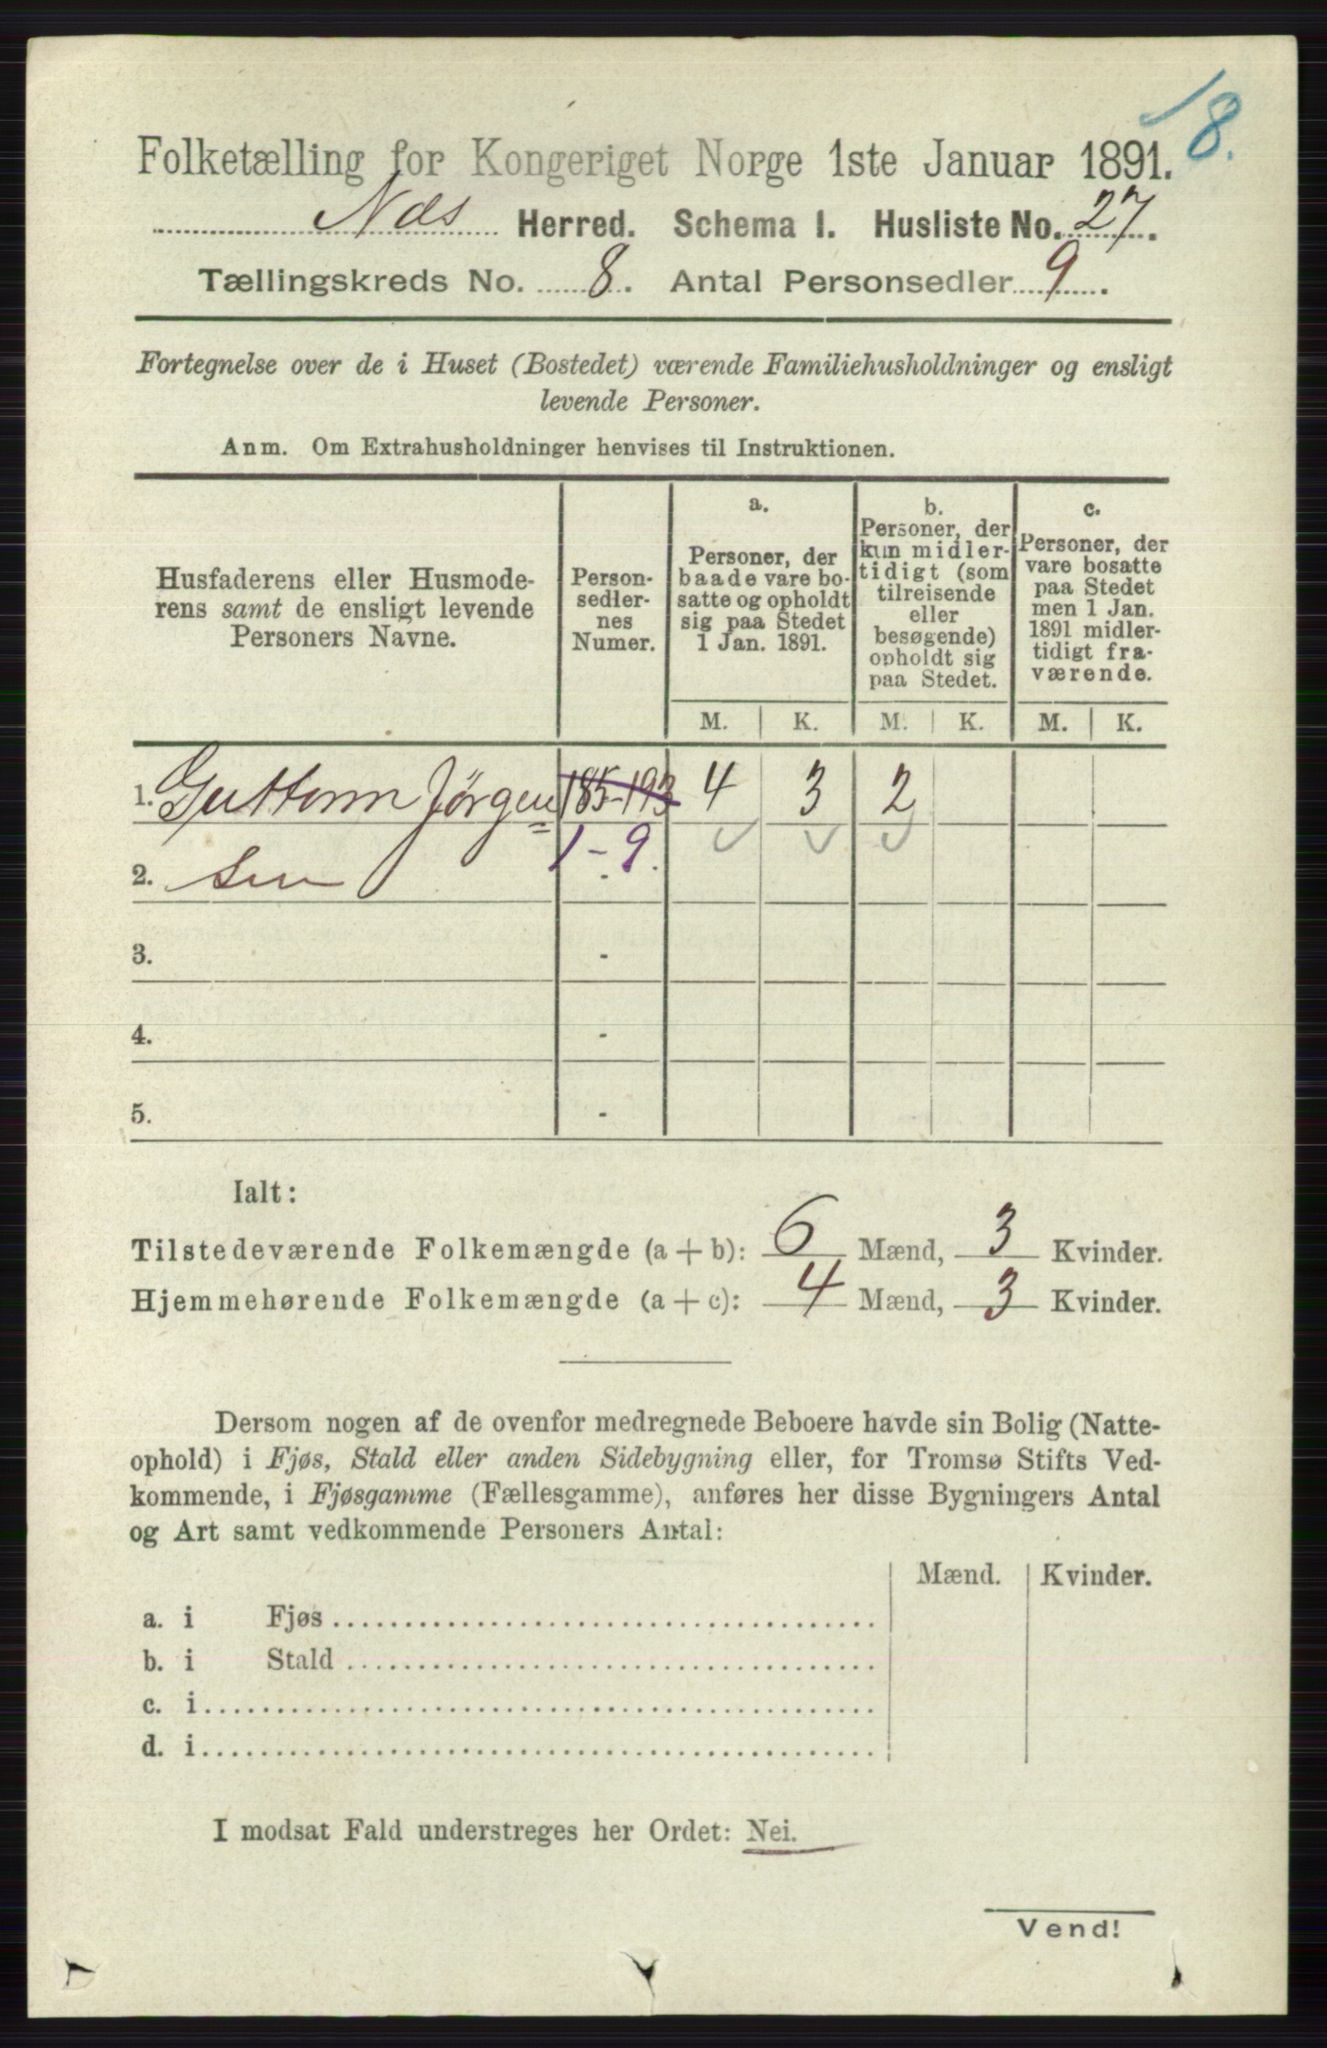 8.
Folketælling for Kongeriget Norge 1ste Januar 1891.
Næs Herred. Schema I. Husliste No. 27.
Tællingskreds No. 8. Antal Personsedler 9.
Fortegnelse over de i Huset (Bostedet) værende Familiehusholdninger og ensligt
levende Personer.
Anm. Om Extrahusholdninger henvises til Instruktionen.
Husfaderens eller Husmode-
rens samt de ensligt levende
Personers Navne.
Person-
sedler-
nes
Numer.
a.
Personer, der
baade vare bo-
satte og opholdt
sig paa Stedet
1 Jan. 1891.
b.
Personer, der
kun midler-
tidigt (som
tilreisende
eller
besøgende)
opholdt sig
paa Stedet.
c.
Personer, der
vare bosatte
paa Stedet
men 1 Jan.
1891 midler-
tidigt fra-
værende.
M. K. M. K. M. K.
1. Guttorm Jörgen= 185-193 4 3 2
1-9.
2. sen -
3. -
4. -
5. -
Ialt:
Tilstedeværende Folkemængde (a + b): 6 Mænd, 3 Kvinder.
Hjemmehørende Folkemængde (a + c): 4 Mænd, 3 Kvinder.
Dersom nogen af de ovenfor medregnede Beboere havde sin Bolig (Natte-
ophold) i Fjøs, Stald eller anden Sidebygning eller, for Tromsø Stifts Ved-
kommende, i Fjøsgamme (Fællesgamme), anføres her disse Bygningers Antal
og Art samt vedkommende Personers Antal:
Mænd. Kvinder.
a. i Fjøs
b. i Stald
c. i
d. i
I modsat Fald understreges her Ordet: Nei.
Vend!